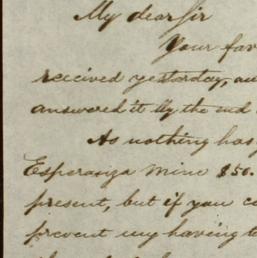 My dear Sir
Your fav
received yesterday, an
answered it by the end
As nothing has
Esperanza Mine $50.
present, but if you co
prevent my having to